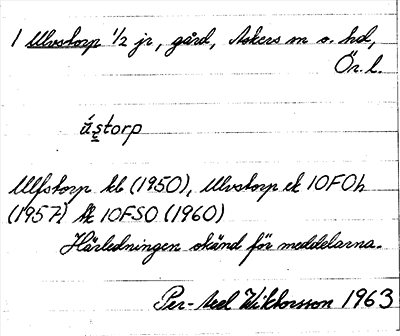 1 Ulvstorp 1/2 jr, gård, Askers sn o. hd,
Ör. l.
ú̜storp
Ulfstorp kb (1950), Ulvstorp ek 10F0h
(1957) ek 10FSO (1960)
Härledningen okänd för meddelarna.
Per-Axel Wiktorsson 1963